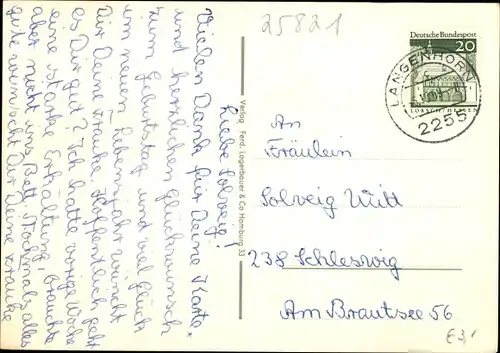 25821
Deutsche Bundespost
20
LORSCH/HESSEN
LANGENHORN
2255
Liebe Solveig!
Vielen Dank für Deine Karte.
und herzlichen Glückwunsch
zum Geburtstag und viel Glück
im neuen Lebensjahr wünscht
Dir Deine Frauke. Hoffentlich geht
es Dir gut? Ich hatte vorige Woche
eine starke Erkältung, brauchte
aber nicht ins Bett. Nochmals alles
gute wünscht Dir Deine Frauke
Verlag Ferd. Lagerbauer & Co Hamburg 33
An
Fräulein
Solveig Witt
238 Schleswig
Am Brautsee 56
£3,-